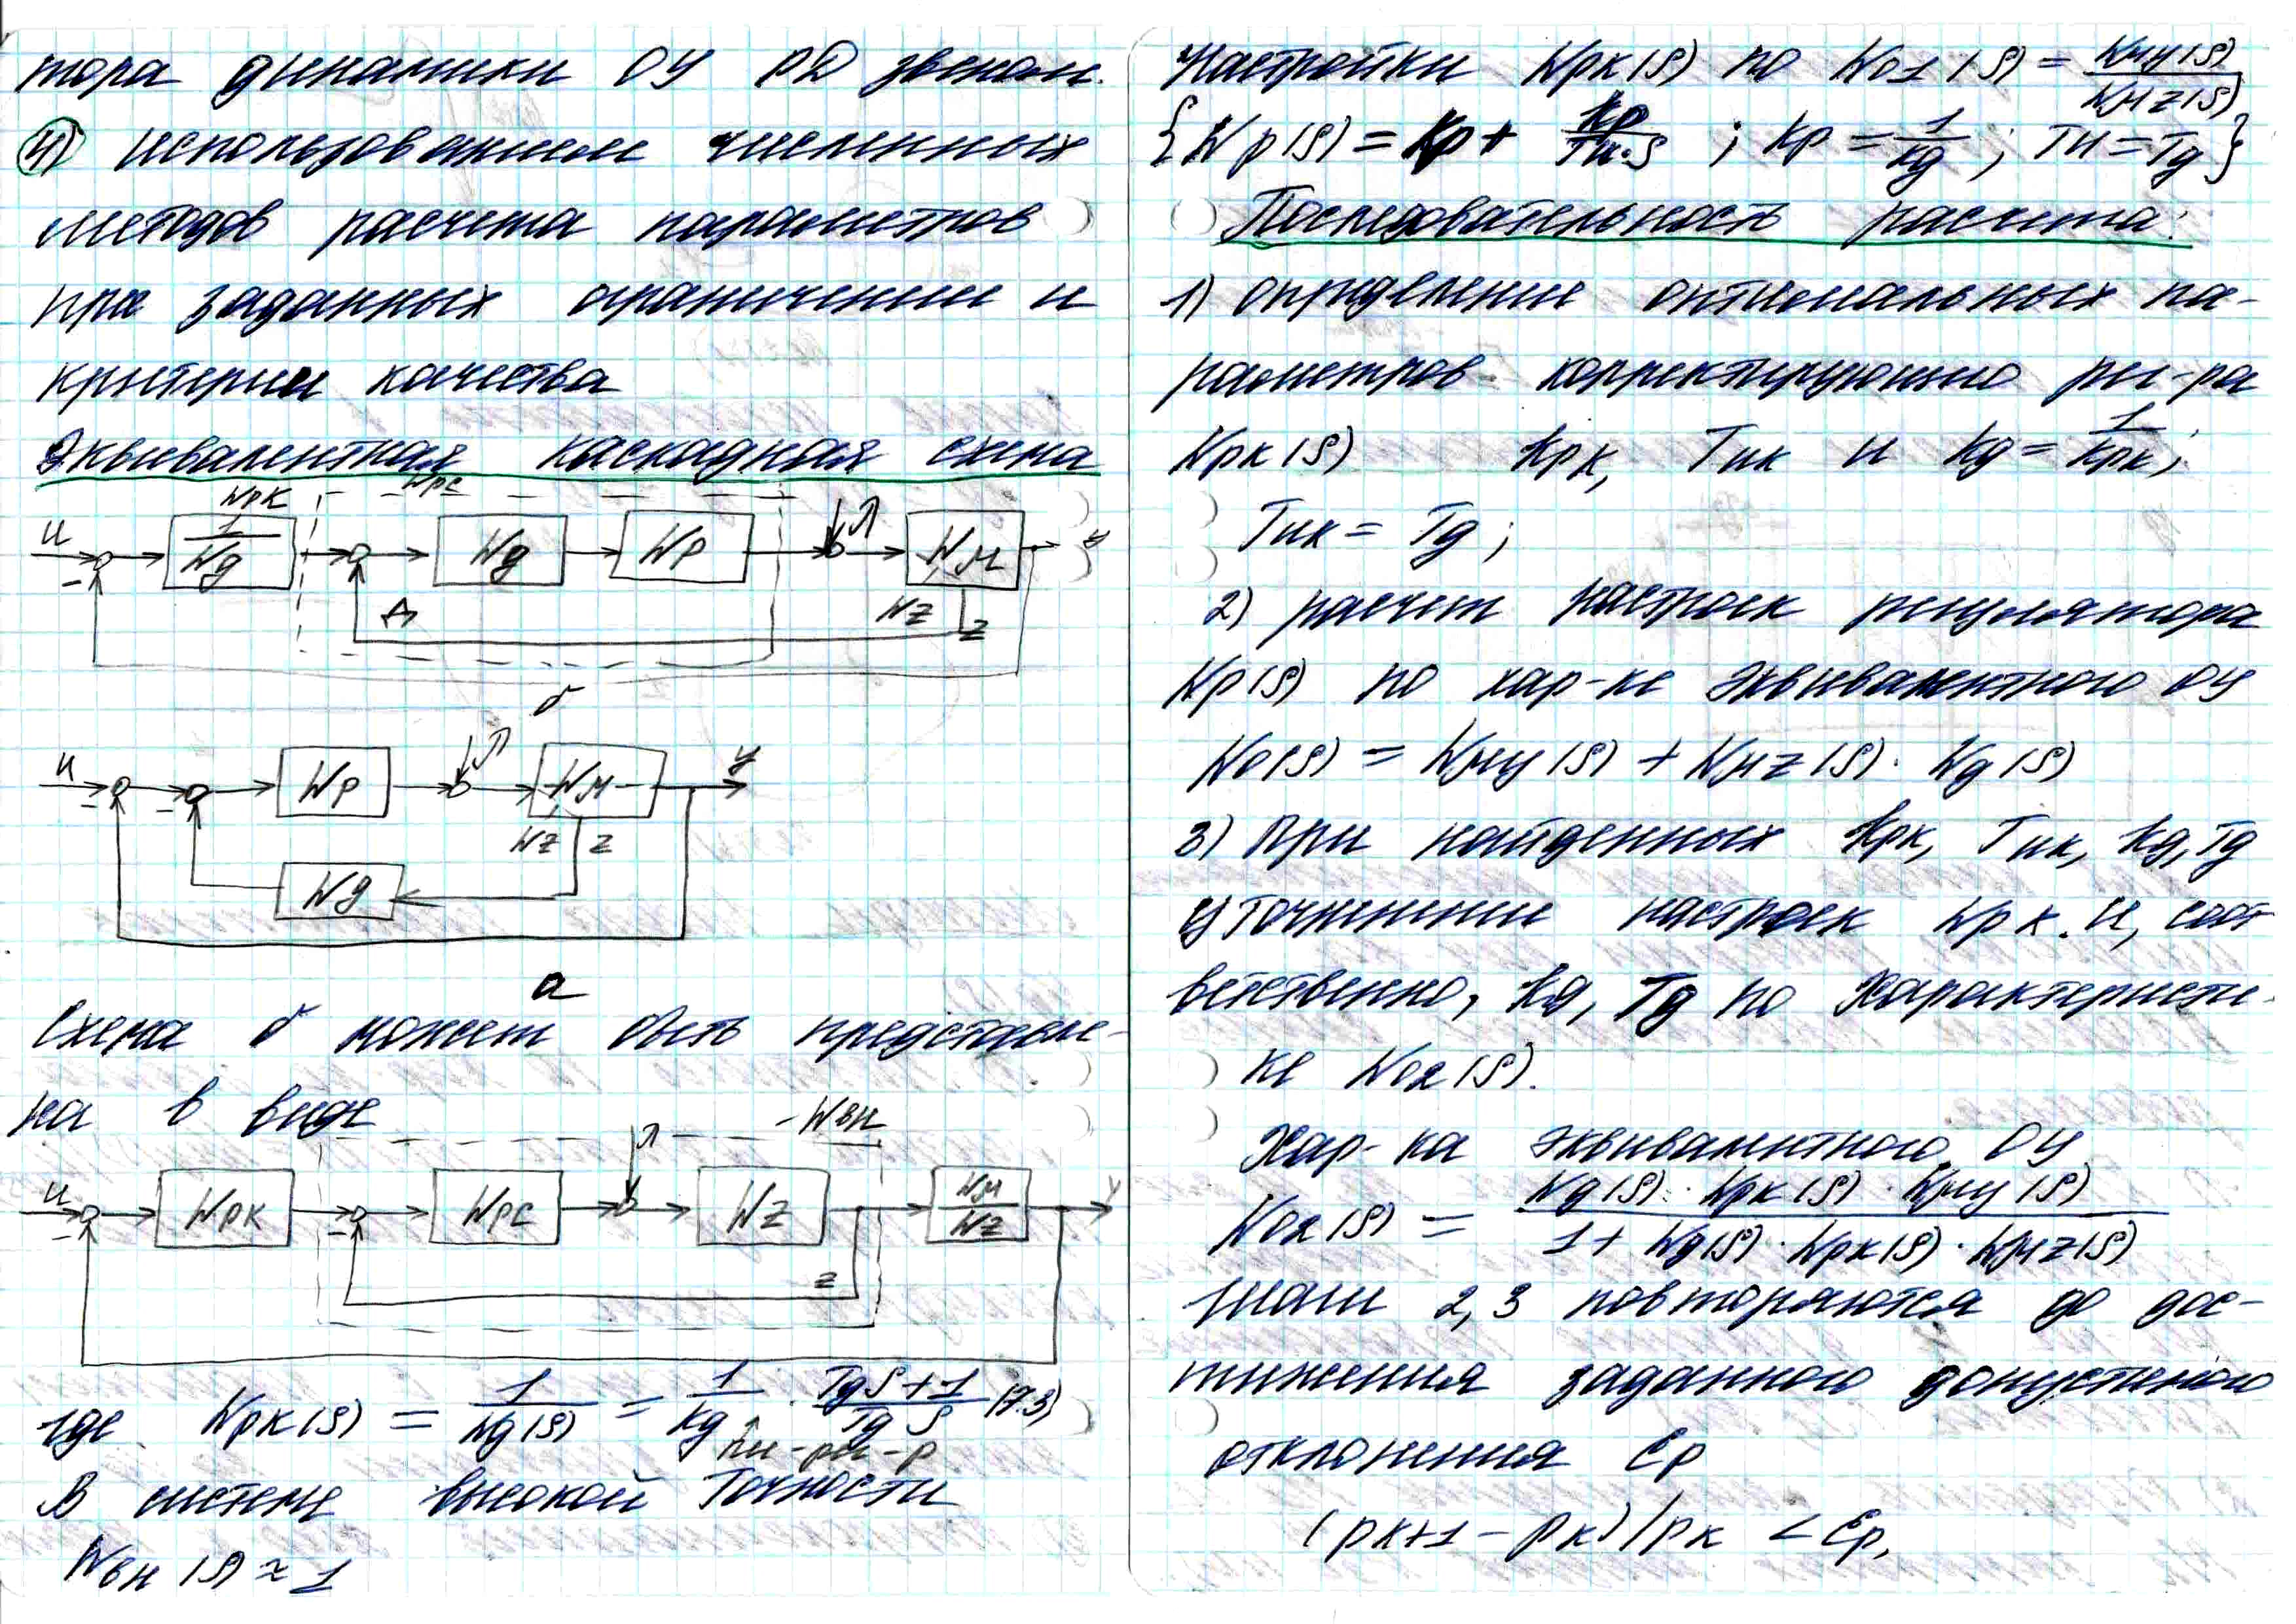 тора динамики ОУ РД звеном.
4) использованием численных
методов расчета параметров
при заданных ограничении и
критерии качества
Эквивалентная каскадная схема
Wрк Wрс
u 1/Wд Wд Wр λ Wм y
- Wz z
б
u Wр λ Wм y
- - Wz z
Wд
а
Схема б может быть представле-
на в виде
Wвн
u Wрк Wрс λ Wz Wм/Wz y
- - z
где Wрк(S) = 1/Wд(S) = 1/kд · (TдS+1)/(TдS) (7.3)
пи-рег-р
В системе высокой точности
Wвн(S) ≈ 1
Настройки Wрк(S) по W01(S) = Wмy(S)/Wмz(S)
{Wр(S) = Kр + Kр/(Tи·S) ; Kр = 1/kд ; Tи = Tд}
Последовательность расчета:
1) определение оптимальных па-
раметров корректирующего рег-ра
Wрк(S) Kрк, Tик и kд = 1/Kрк;
Tик = Tд;
2) расчет настроек регулятора
Wр(S) по хар-ке эквивалентного ОУ
W0(S) = Wмy(S) + Wмz(S) · Wд(S)
3) При найденных Kрк, Tик, kд, Tд
уточнение настроек Wрк. И, соот-
ветственно, kд, Tд по характеристи-
ке W02(S).
Хар-ка эквивалентного ОУ
W02(S) = (Wд(S) · Wрк(S) · Wмy(S))/(1 + Wд(S) · Wрк(S) · Wмz(S))
Шаги 2,3 повторяются до дос-
тижения заданного допустимого
отклонения Ер
(рк+1 - рк)/рк < Ер,